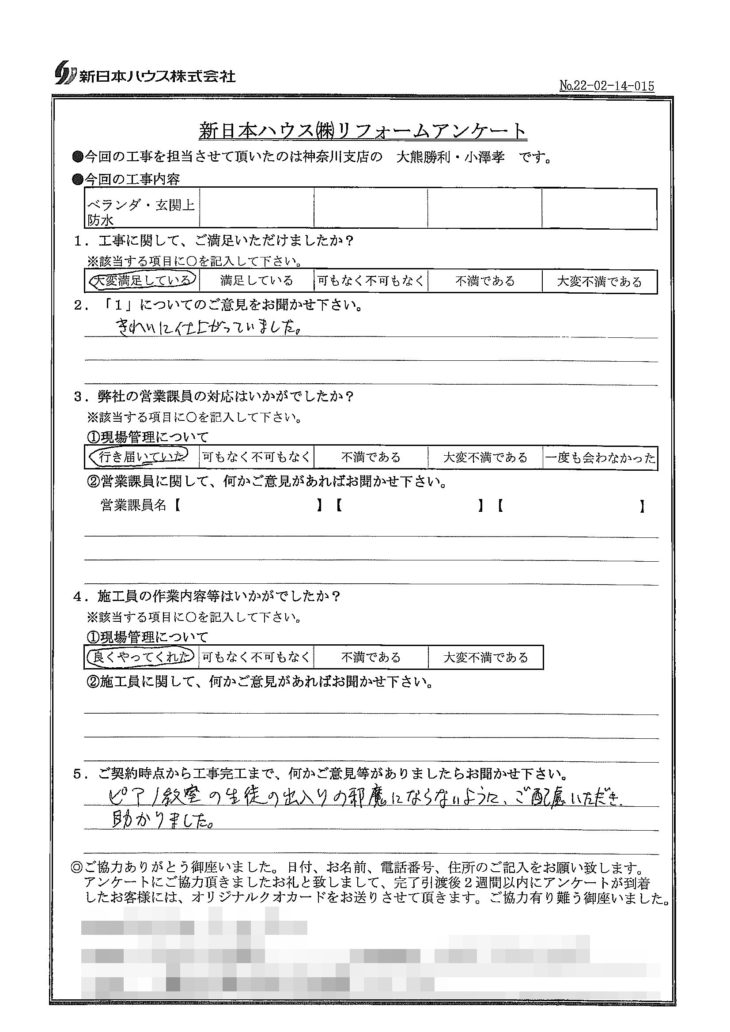 新日本ハウス株式会社
No.22-02-14-015
新日本ハウス㈱リフォームアンケート
●今回の工事を担当させて頂いたのは神奈川支店の　大熊勝利・小澤孝　です。
●今回の工事内容
ベランダ・玄関上
防水
1．工事に関して、ご満足いただけましたか？
※該当する項目に○を記入して下さい。
大変満足している　満足している　可もなく不可もなく　不満である　大変不満である
2．「1」についてのご意見をお聞かせ下さい。
きれいに仕上がっていました。
3．弊社の営業課員の対応はいかがでしたか？
※該当する項目に○を記入して下さい。
①現場管理について
行き届いていた　可もなく不可もなく　不満である　大変不満である　一度も会わなかった
②営業課員に関して、何かご意見があればお聞かせ下さい。
営業課員名【　　　】【　　　】【　　　】
4．施工員の作業内容等はいかがでしたか？
※該当する項目に○を記入して下さい。
①現場管理について
良くやってくれた　可もなく不可もなく　不満である　大変不満である
②施工員に関して、何かご意見があればお聞かせ下さい。
5．ご契約時点から工事完工まで、何かご意見等がありましたらお聞かせ下さい。
ピアノ教室の生徒の出入りの邪魔にならないように、ご配慮いただき、
助かりました。
◎ご協力ありがとう御座いました。日付、お名前、電話番号、住所のご記入をお願い致します。
アンケートにご協力頂きましたお礼と致しまして、完了引渡後2週間以内にアンケートが到着
したお客様には、オリジナルクオカードをお送りさせて頂きます。ご協力有り難う御座いました。